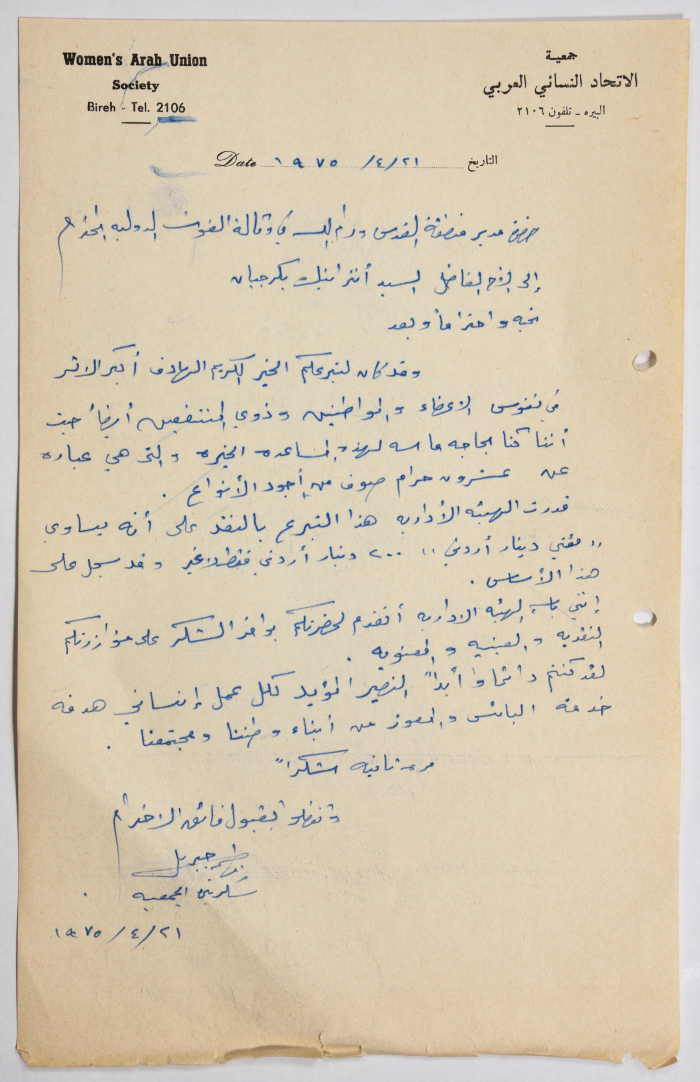 Women's Arab Union
Society
Bireh - Tel. 2106
جمعية
الاتحاد النسائي العربي
البيره ـ تلفون ٢١٠٦
Date ١٩٧٥ /٤/٢١ التاريخ
حضرة مدير منطقة القدس ورام الله في وكالة الغوث الدوليه المحترم
إلى الأخ الفاضل السيد أنترانيك بكرجيان
تحيه واحتراماً وبعد
وقد كان لتبرعكم الخير الكريم الهادف أكبر الاثر
في نفوس الاعضاء والمواطنين وذوي المنتفعين أيضاً حيث
أننا كنا بحاجه ماسه لهذه المساعده الخيره والتي هي عباره
عن عشرون حرام صوف من أجود الأنواع .
قدرت الهيئه الأداريه هذا التبرع بالنقد على أنه يساوي
" مئتي دينار أردني " ٢٠٠ دينار أردني فقط لاغير وقد سجل على
هذا الأساس .
إنني باسم الهيئه الاداريه أتقدم لحضرتكم بوافر الشكر على مؤازرتكم
النقديه والعينيه والمعنويه .
لقد كنتم دائماً وأبداً النصير المؤيد لكل عمل إنساني هدفه
خدمة البائس والمعوز من أبناء وطننا ومجتمعنا .
مره ثانيه شكراً
وتفضلوا بقبول فائق الاحترام
جبريل
سكرتيرة الجمعيه
١٩٧٥/٤/٢١